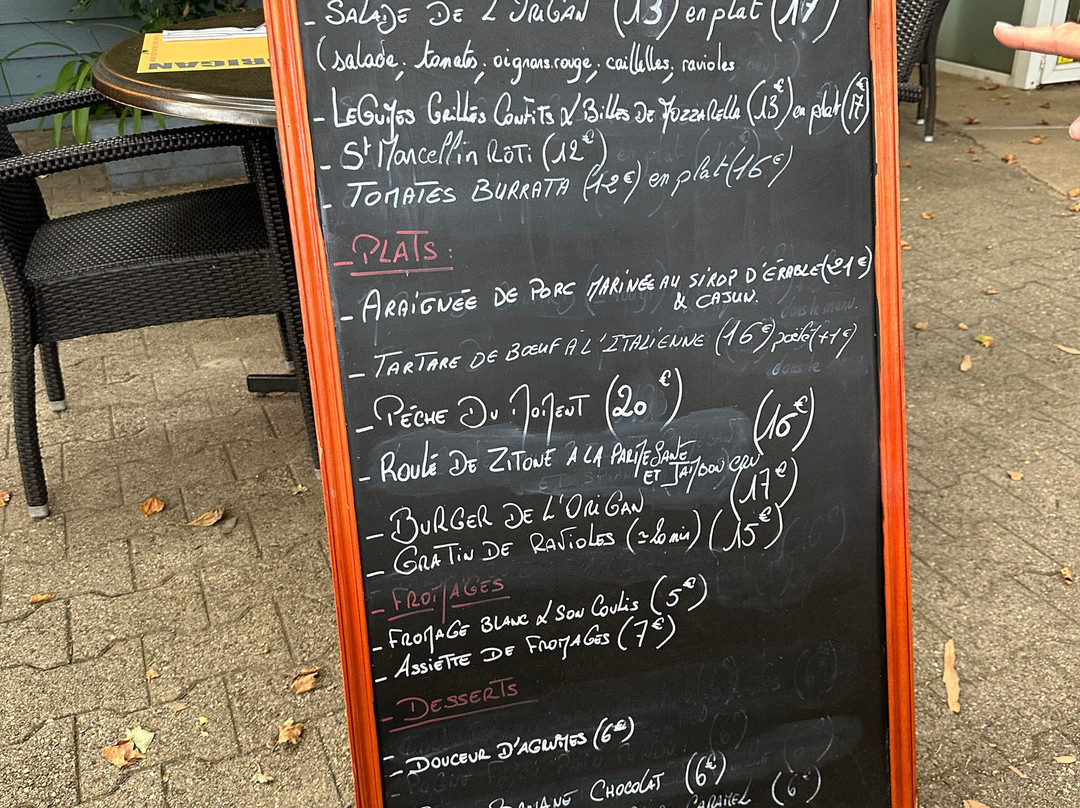 - SALADE DE L'ORIGAN (13) en plat (17)
(salade, tomates, oignons rouge, cailelles, ravioles
- LEGUMES GRILLÉS CONFITS & BILLES DE MOZZARELLA (13€) en plat (17€)
- St MARCELLIN RÔTI (12€)
- TOMATES BURRATA (12€) en plat (16€)
- PLATS :
- ARAIGNÉE DE PORC MARINÉE AU SIROP D'ÉRABLE (21€)
& CAJUN.
- TARTARE DE BŒUF À L'ITALIENNE (16€) poêlé (+1€)
- PÊCHE DU MOMENT (20€)
- ROULÉ DE ZITONE A LA PARMESANE (16€)
ET JAMBON CRU
- BURGER DE L'ORIGAN (17€)
- GRATIN DE RAVIOLES (≃20 min) (15€)
- FROMAGES
- FROMAGE BLANC & SON COULIS (5€)
- ASSIETTE DE FROMAGES (7€)
- DESSERTS
- DOUCEUR D'AGRUMES (6€)
CHOCOLAT (6€)
CARAMEL (6€)
RIGAN